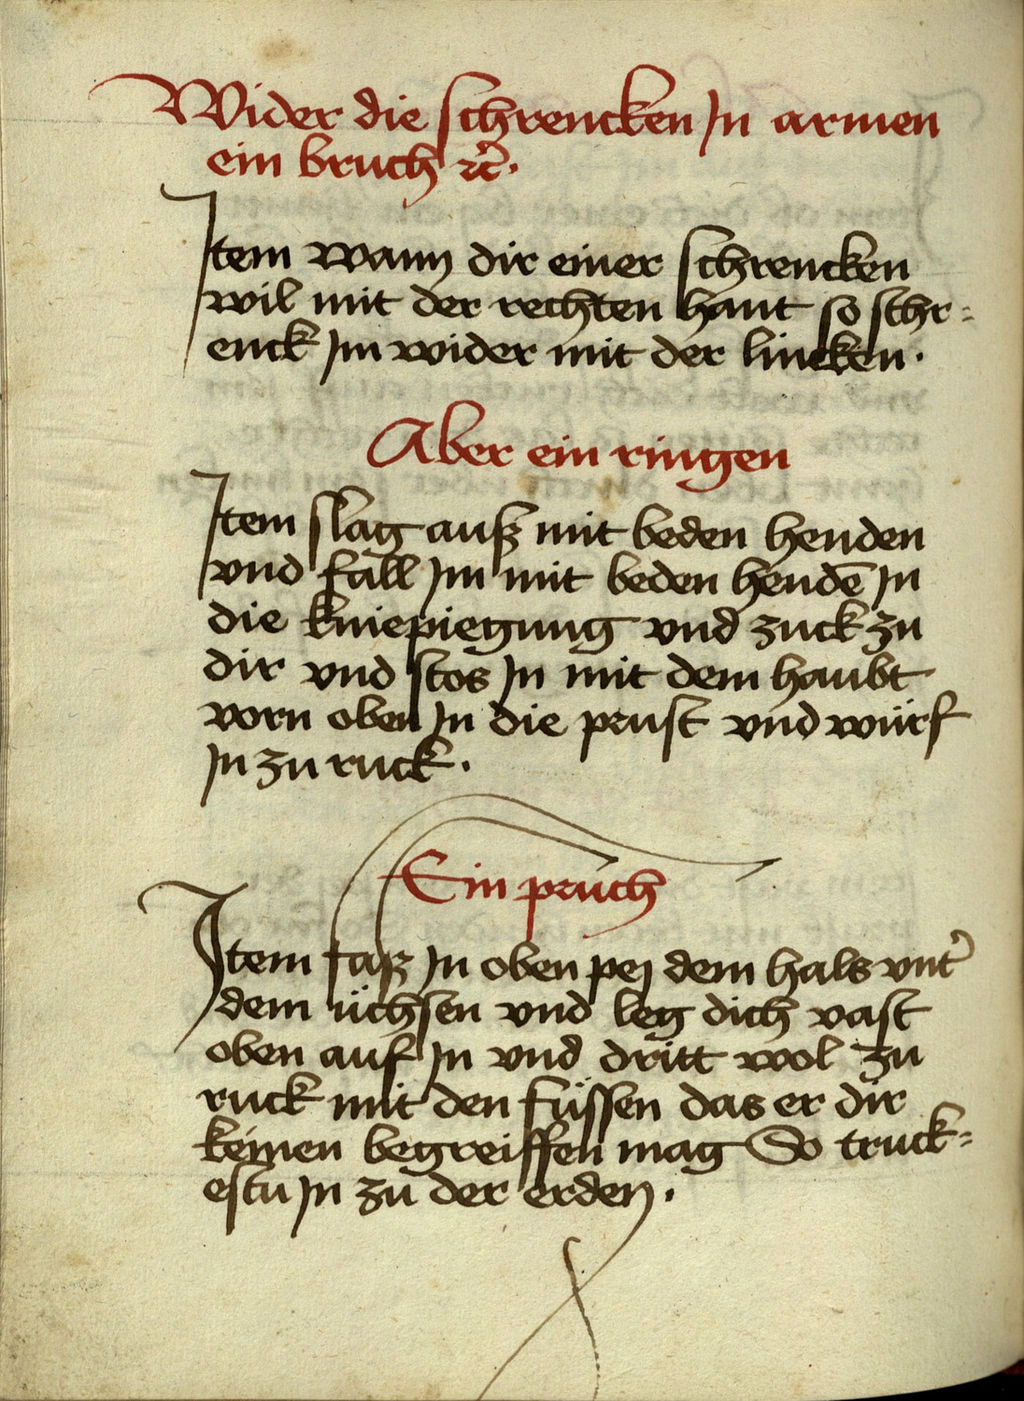 Wider die schrencken Jn armen
ein bruch ꝛc̄.
Jtem wann dir einer schrencken
wil mit der rechten hant so schr⸗
enck Jm wider mit der lincken.
Aber ein ringen
Jtem slag auß mit beden henden
vnd fall Jm mit beden hendē Jn
die kniepiegung vnd zuck zu
dir vnd stos Jn mit dem haubt
vorn oben Jn die prust vnd würf
Jn zu ruck.
Ein pruch
Jtem faß Jn oben pej dem hals vnt᷑
dem üchsen vnd leg dich vast
oben auf Jn vnd dritt wol zu
ruck mit den füssen das er dir
keinen begreiffen mag So truck⸗
estu Jn zu der erden.